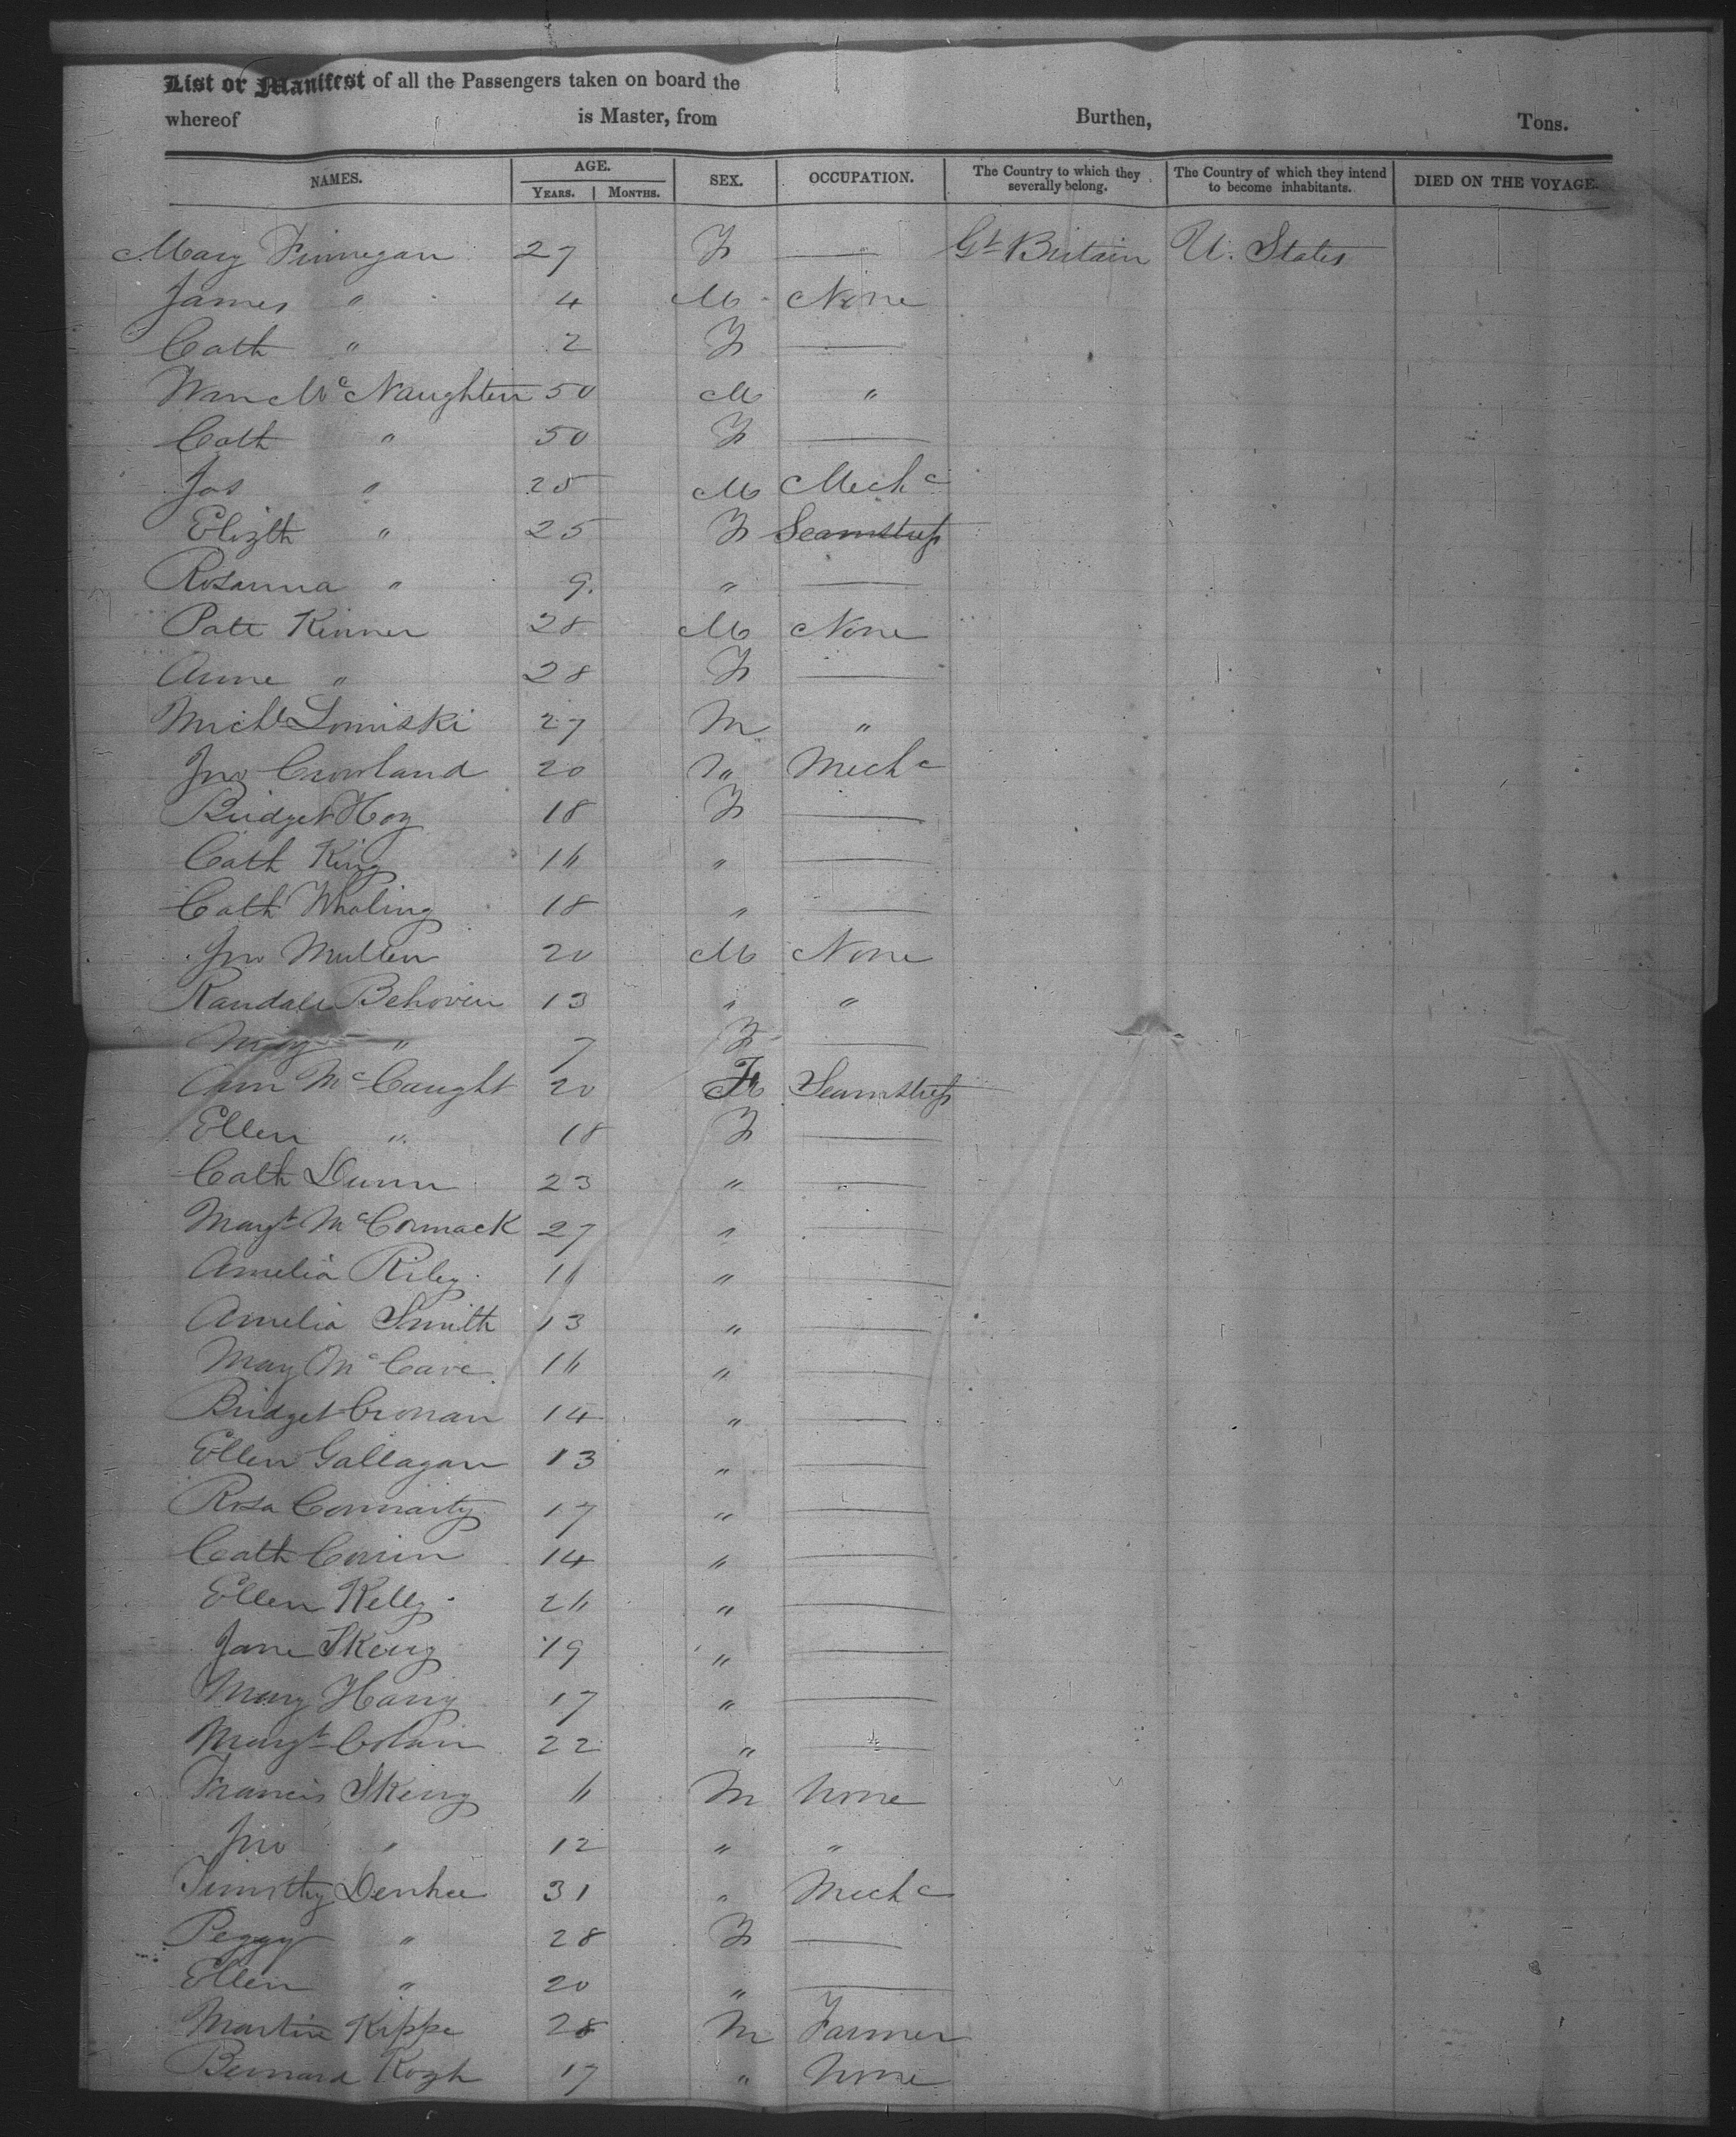 List or Manifest of all the Passengers taken on board the
whereof is Master, from Burthen, Tons.
NAMES. AGE. SEX. OCCUPATION. The Country to which they severally belong. The Country of which they intend to become inhabitants. DIED ON THE VOYAGE.
YEARS. MONTHS.
Mary Finnegan 27 F — Gt Britain U. States
James " 4 M None
Cath " 2 F —
Wm McNaughten 50 M "
Cath " 50 F —
Jas " 25 M Mechc
Elizth " 25 F Seamstress
Rosanna " 9 " —
Patt Kinner 28 M None
Anne " 28 F —
Michl Lomiski 27 M "
Jno Crowland 20 " Mechc
Bridget Hoy 18 F —
Cath King 16 " —
Cath Whaling 18 " —
Jno Mullen 20 M None
Randall Behovin 13 " "
Mary " 7 F —
Ann McCaught 20 F Seamstress
Ellen " 18 F —
Cath Dunn 23 " —
Margt McCormack 27 " —
Amelia Riley 11 " —
Amelia Smith 13 " —
Mary McCave 16 " —
Bridget Cronan 14 " —
Ellen Gallagan 13 " —
Rosa Connarty 17 " —
Cath Corrin 14 " —
Ellen Kelly 26 " —
Jane Skeny 19 " —
Mary Harry 17 " —
Margt Colvin 22 " —
Francis Skeny 6 M None
Jno " 12 " "
Timothy Denhee 31 " Mechc
Peggy " 28 F —
Ellen " 20 " —
Martin Kippe 28 M Farmer
Bernard Kogh 17 " None